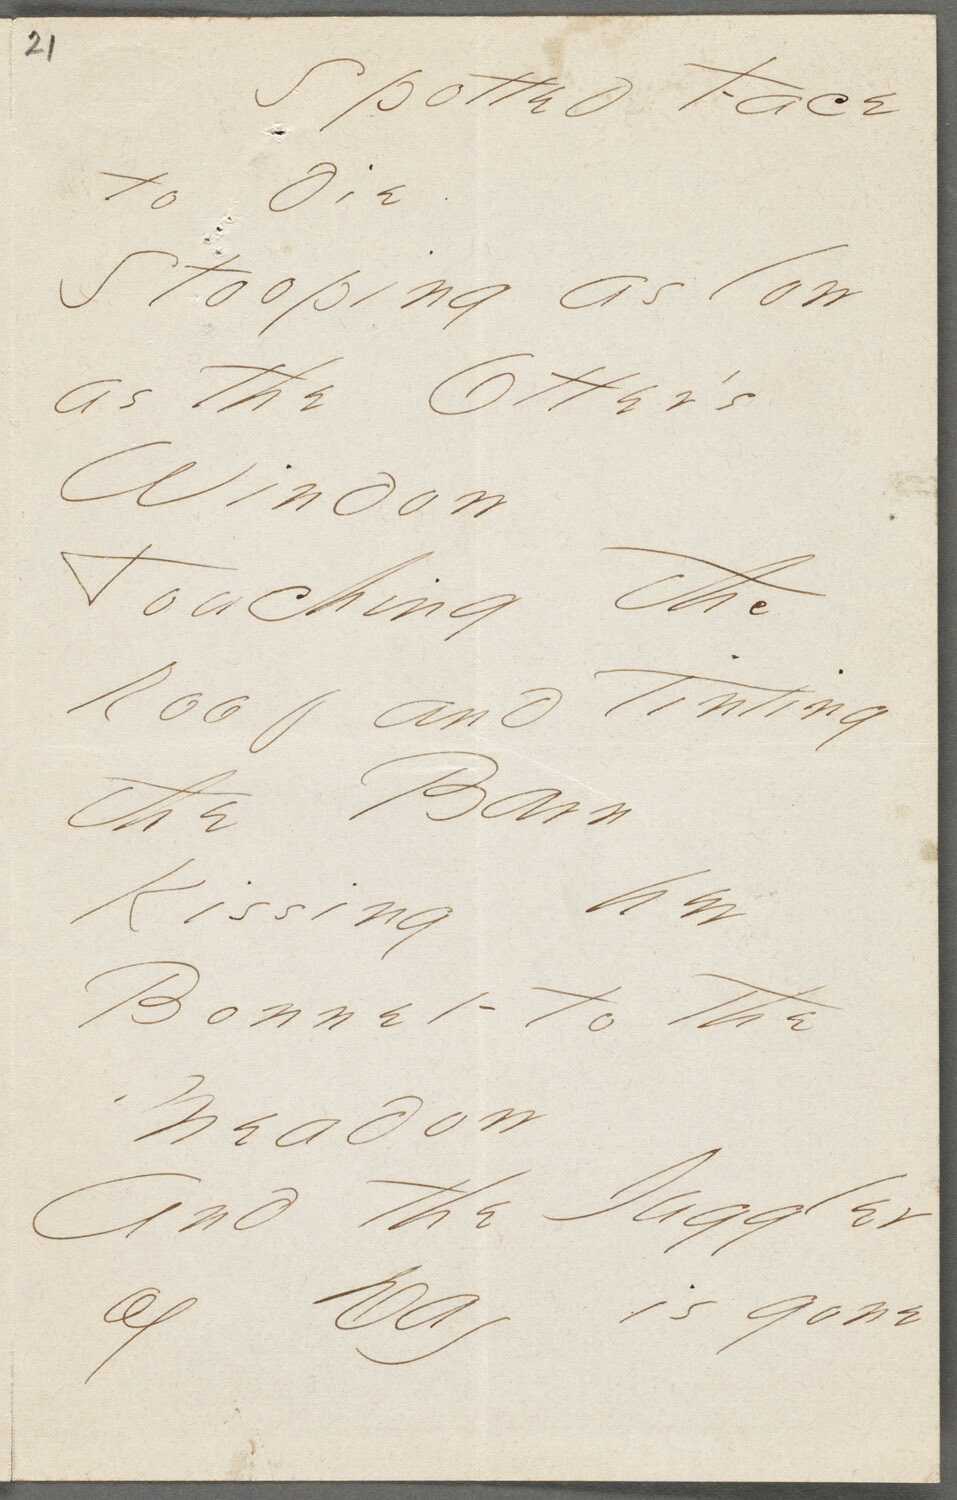 21
Spotted Face
to die.
Stooping as low
as the Otter's
Window
Touching the
Roof and Tinting
the Barn
Kissing her
Bonnet to the
Meadow
And the Juggler
of Day is gone